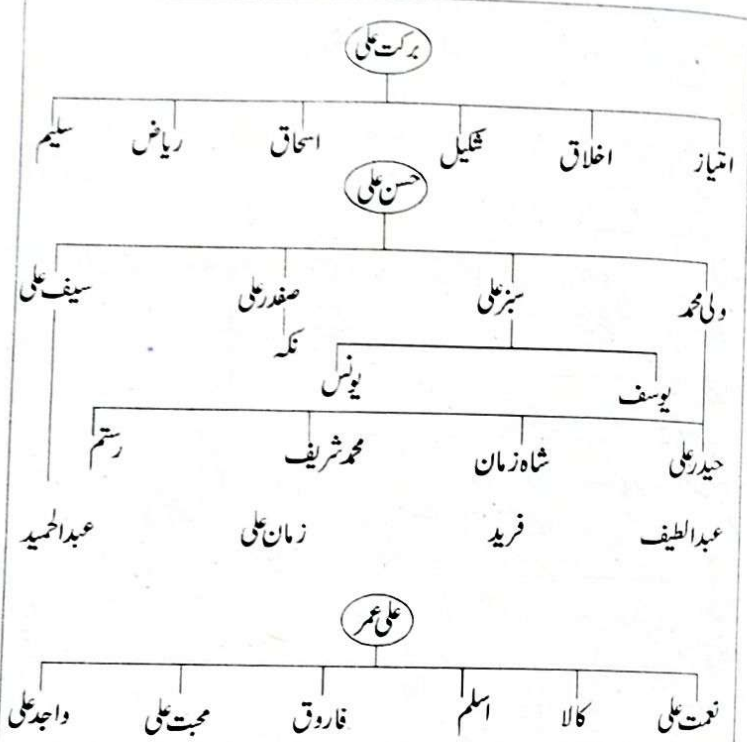 برکت علی
امتیاز اخلاق شکیل اسحاق ریاض سلیم
حسن علی
ولی محمد سبز علی صفدر علی سیف علی
نکہ
یوسف یونس
حیدر علی شاہ زمان محمد شریف رستم
عبدالطیف فرید زمان علی عبدالحمید
علی عمر
نعمت علی کالا اسلم فاروق محبت علی واجد علی